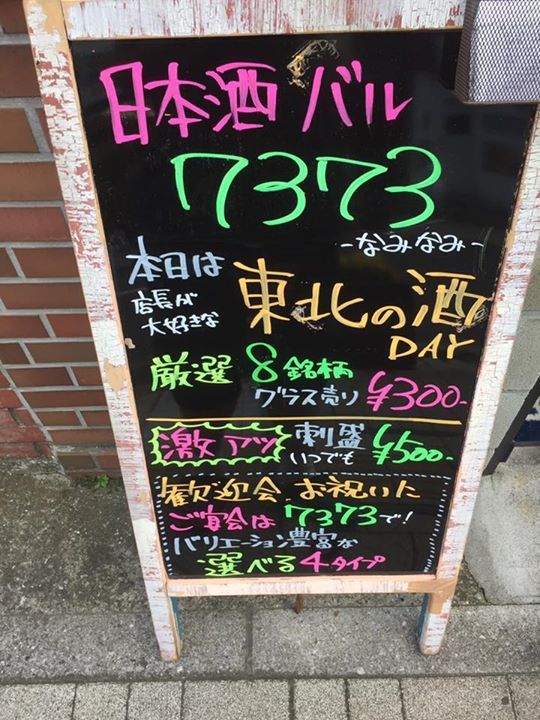 日本酒バル
7373
-なみなみ-
本日は
店長が
大好きな
東北の酒
DAY
厳選 8銘柄
グラス売り ¥300-
激アツ 刺盛
いつでも ¥500-
歓迎会、お祝いた
ご宴会は 7373で!
バリエーション豊富な
選べる4タイプ